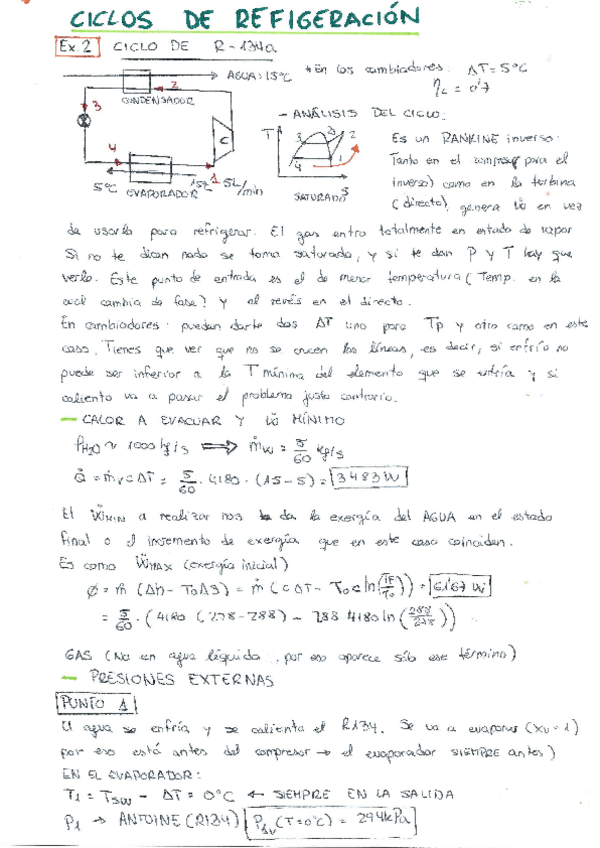 CICLOS DE REFIGERACIÓN
Ex.2 CICLO DE R-134a
* En los cambiadores: ΔT = 5ºC
AGUA: 15ºC
ηc = 0'7
2
CONDENSADOR
3
C
4
1
5ºC EVAPORADOR 15ºC 5L/min
- ANÁLISIS DEL CICLO:
T
3 2s 2
4 1
SATURADO S
Es un RANKINE inverso:
Tanto en el compresor para el
inverso) como en la turbina
(directo), genera ẇ en vez
de usarla para refrigerar. El gas entra totalmente en estado de vapor
Si no te dicen nada se toma saturado, y si te dan P y T hay que
verlo. Este punto de entrada es el de menor temperatura (Temp. en la
cual cambia de fase) y al revés en el directo.
En cambiadores: pueden darte dos ΔT uno para Tp y otro como en este
caso. Tienes que ver que no se crucen las líneas, es decir, si enfrío no
puede ser inferior a la T mínima del elemento que se enfría y si
caliento va a pasar el problema justo contrario.
- CALOR A EVACUAR Y ẇ MÍNIMO
ρH2O ≈ 1000 kg/s ⟹ ṁw = 5/60 kg/s
Q̇ = ṁw c ΔT = 5/60 · 4180 · (15-5) = 3483 W
El ẆMIN a realizar nos da la exergía del AGUA en el estado
final o el incremento de exergía que en este caso coinciden.
Es como ẆMAX (exergía inicial)
ϕ = ṁ (Δh - T0Δs) = ṁ (cΔT - T0 c ln(TF/T0)) = 61'67 W
= 5/60 · (4180 (278-288) - 288 4180 ln(288/278))
GAS (No en agua líquida, por eso aparece sólo ese término)
- PRESIONES EXTERNAS
PUNTO 1
El agua se enfría y se calienta el R134. Se va a evaporar (xv=1)
por eso está antes del compresor → el evaporador SIEMPRE antes)
EN EL EVAPORADOR:
T1 = TSW - ΔT = 0ºC ← SIEMPRE EN LA SALIDA
P1 → ANTOINE (R134) Psv (T=0ºC) = 294 kPa